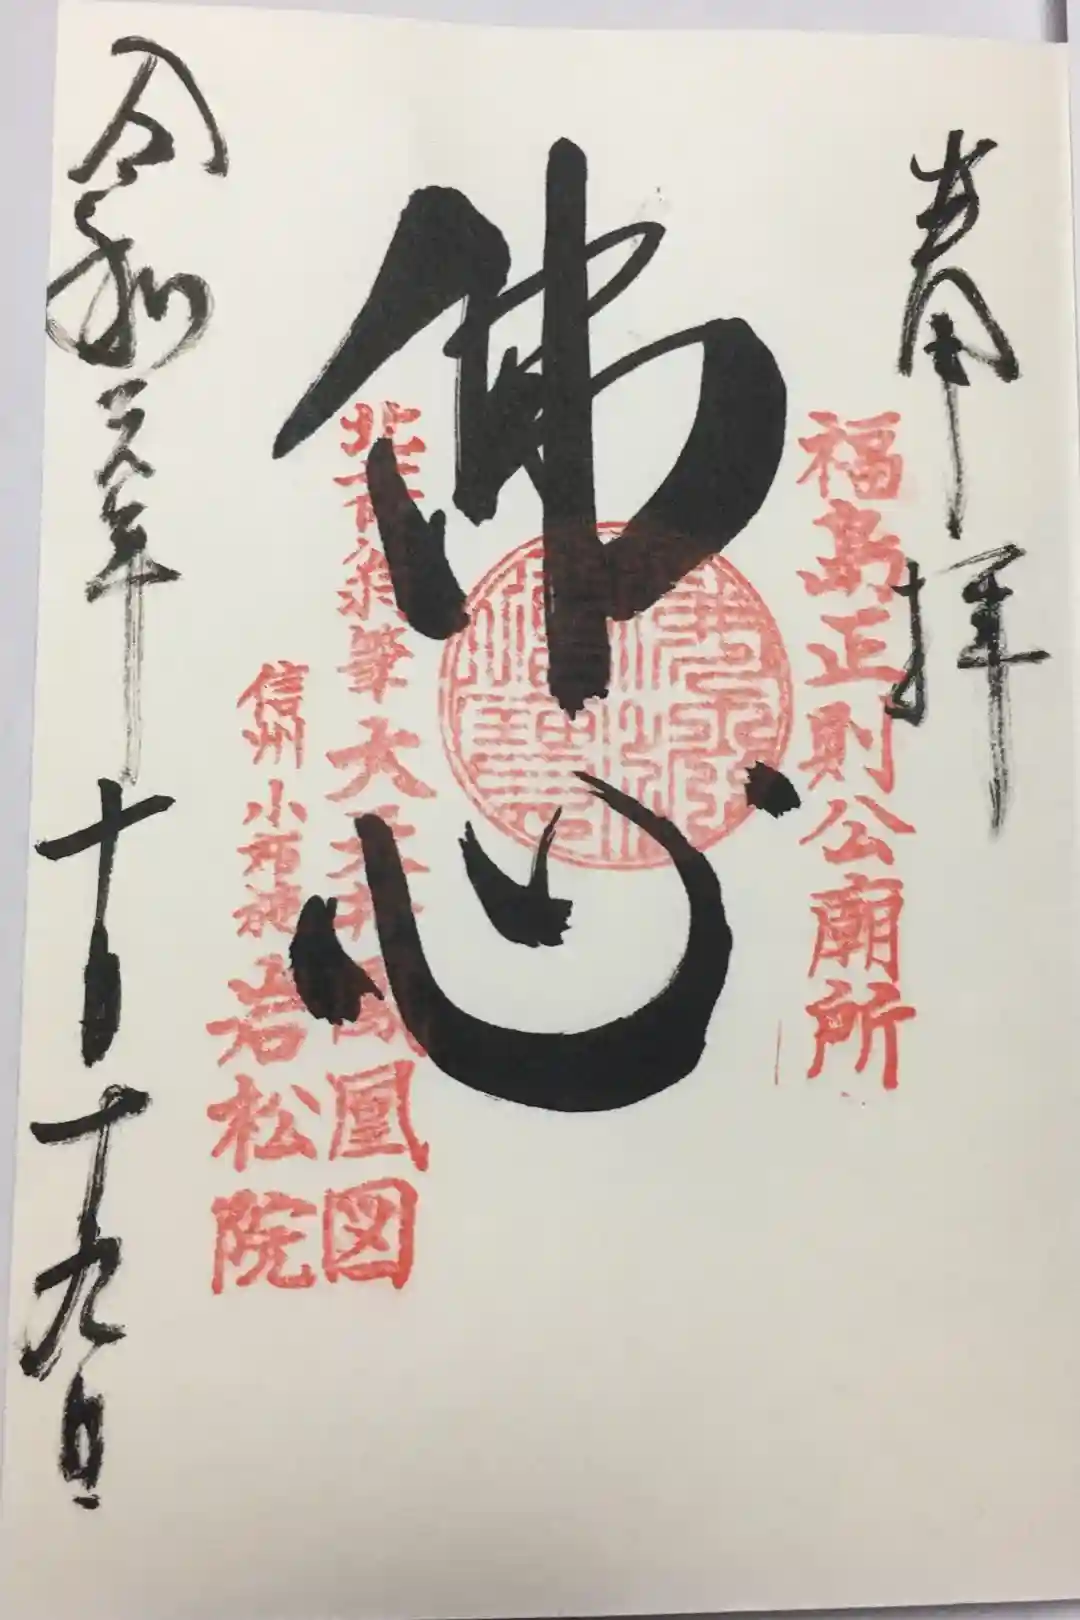 奉拝
福島正則公廟所
佛心
北斎翁筆大天井鳳凰図
信州小布施岩松院
令和元年十月十九日